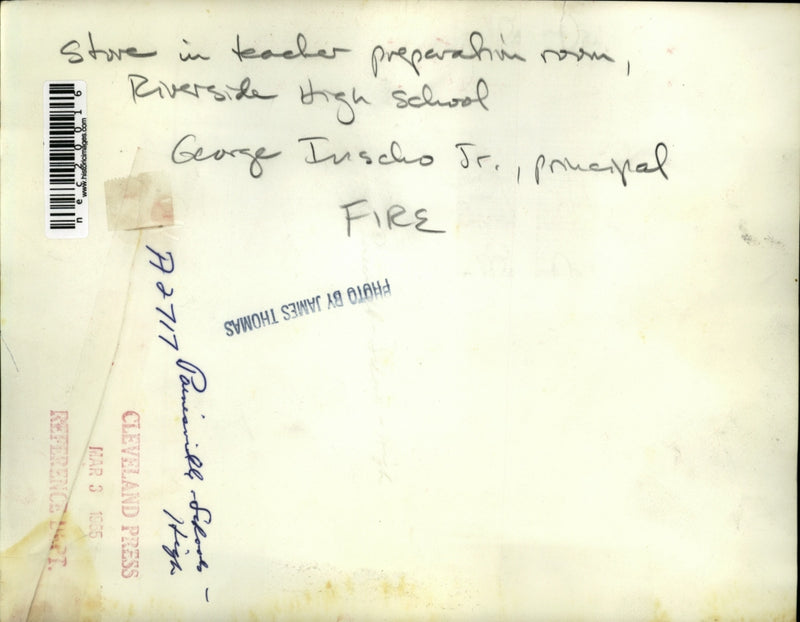 Stove in teacher preparation room,
Riverside High School
George Inscho Jr., principal
FIRE
nec20016
www.historicimages.com
PHOTO BY JAMES THOMAS
A2717 Painesville - Schools -
High
CLEVELAND PRESS
MAR 3 1965
REFERENCE DEPT.